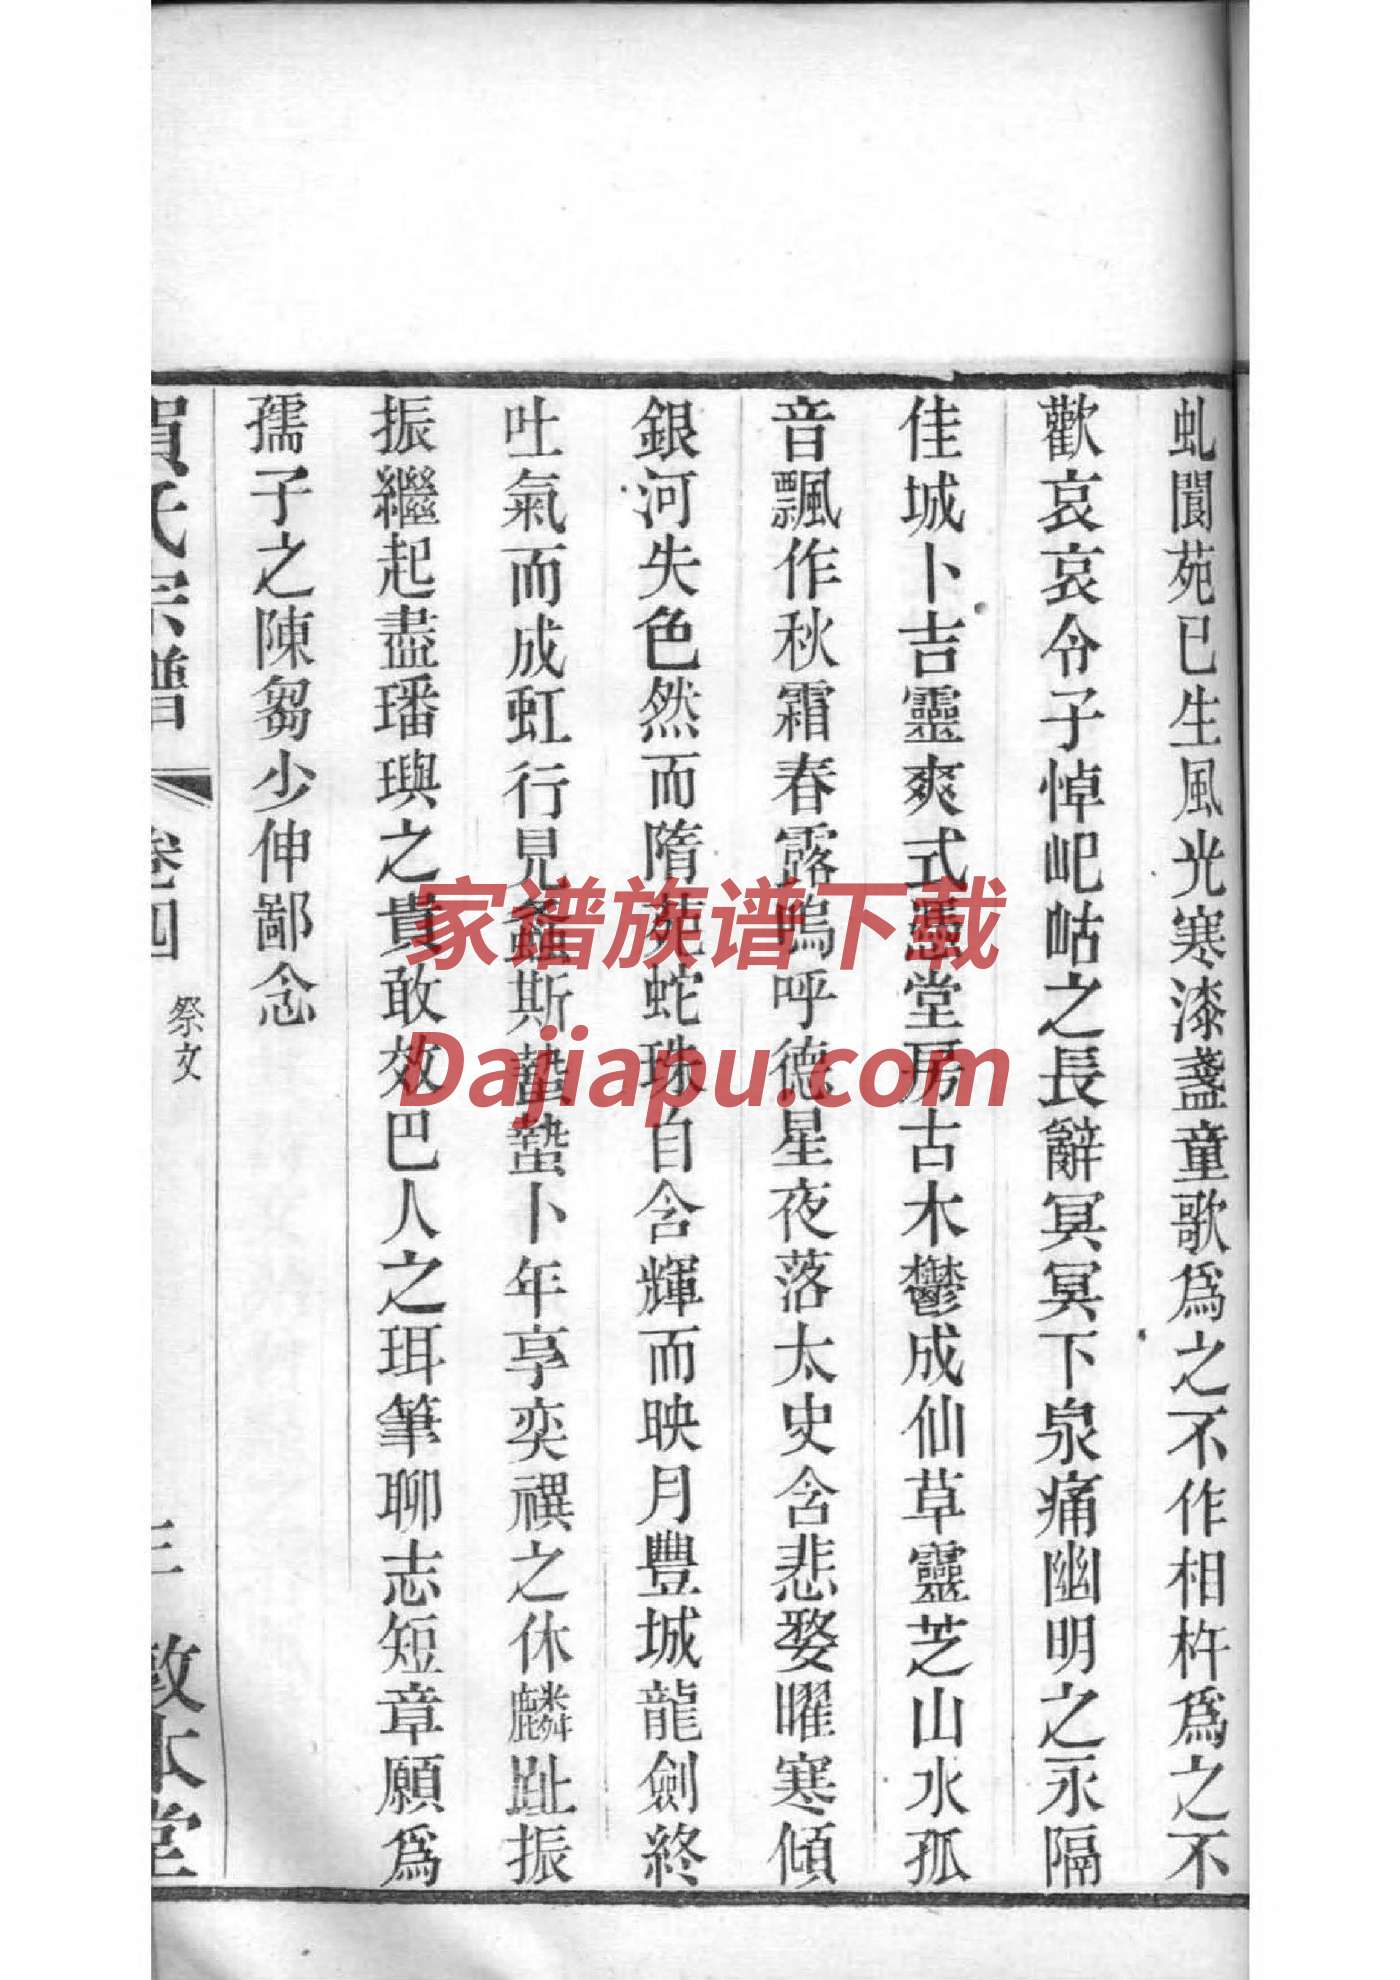 虬閬苑已生風光寒漆盞童歌爲之不作相杵爲之不
歡哀哀令子悼屺岵之長辭冥冥下泉痛幽明之永隔
佳城卜吉靈爽式憑堂房古木鬱成仙草靈芝山水孤
音飄作秋霜春露嗚呼德星夜落太史含悲婺曜寒傾
銀河失色然而隋苑蛇珠自含輝而映月豐城龍劍終
吐氣而成虹行見螽斯蟄蟄卜年享奕禩之休麟趾振
振繼起盡璠璵之貴敢效巴人之珥筆聊志短章願爲
孺子之陳芻少伸鄙念
賀氏宗譜 卷四 祭文 三 敦本堂
家谱族谱下载
Dajiapu.com